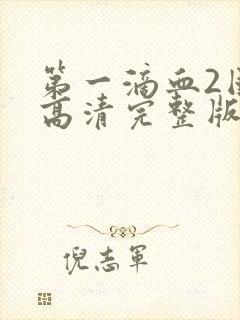 第一滴血2
高清完整版
倪志軍